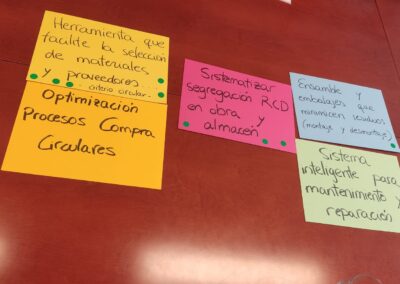 Herramienta que
facilite la selección
de materiales
y proveedores...
criterio circular.
Optimización
Procesos Compra
Circulares
Sistematizar
segregación RCD
en obra y
almacén
Ensamble y
embalajes que
minimicen residuos
(montaje y desmontaje)
Sistema
inteligente para
mantenimiento y
reparación